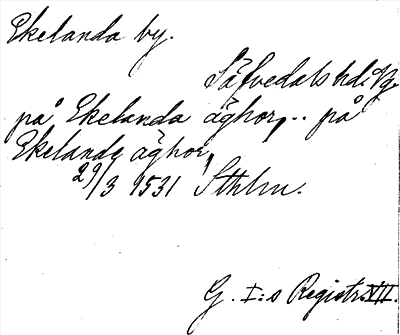 Ekelanda by.
Säfvedals hd: Vg.
på Ekelanda äghor, .. på
Ekelande äghor,
29/3 1531 Sthlm.
G. I:s Registr. VII.